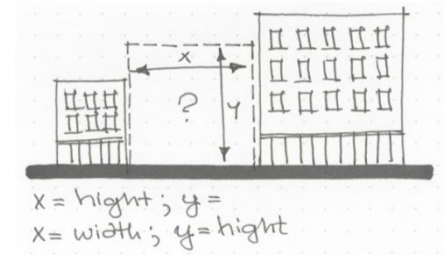 x
?
y
x = hight; y =
x = width; y = hight